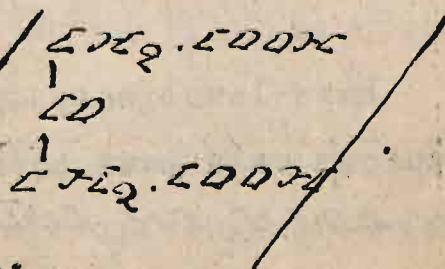 CH₂.COOH
CO
CH₂.COOH